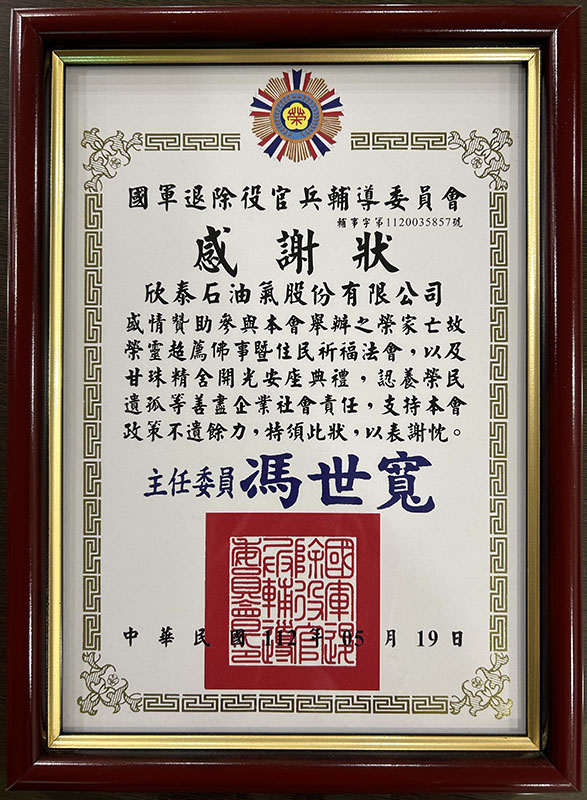 榮
國軍退除役官兵輔導委員會
輔事字第1120035857號
感謝狀
欣泰石油氣股份有限公司
盛情贊助參與本會舉辦之榮家亡故
榮靈超薦佛事暨住民祈福法會，以及
甘珠精舍開光安座典禮，認養榮民
遺孤等善盡企業社會責任，支持本會
政策不遺餘力，特頒此狀，以表謝忱。
主任委員 馮世寬
國軍退除役官兵輔導委員會印
中華民國112年05月19日